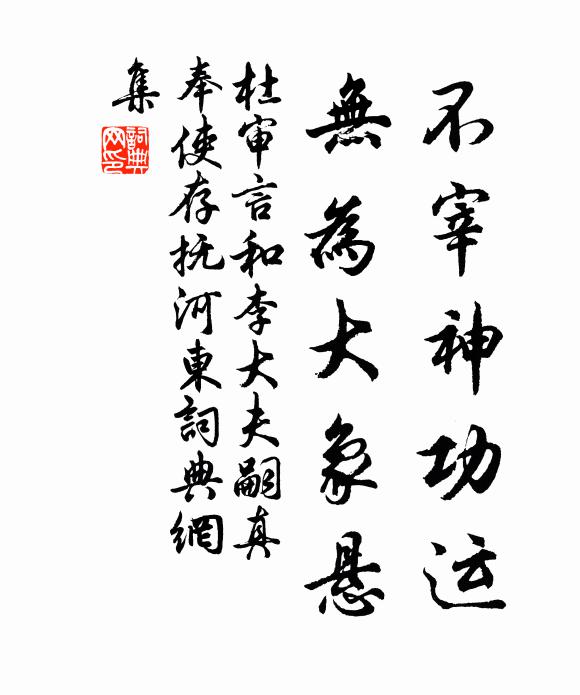 不宰神功运
無為大象悬
杜审言和李大夫嗣真
奉使存抚河東詞典網
集
詞典网印